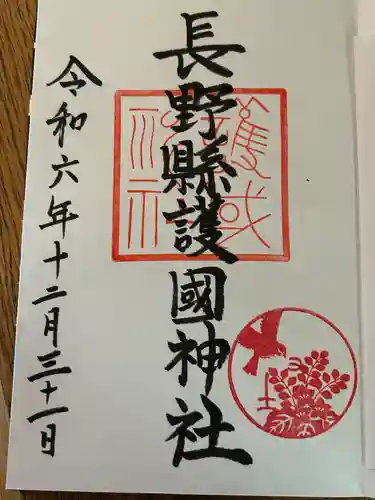 長野縣護國神社
令和六年十二月三十一日